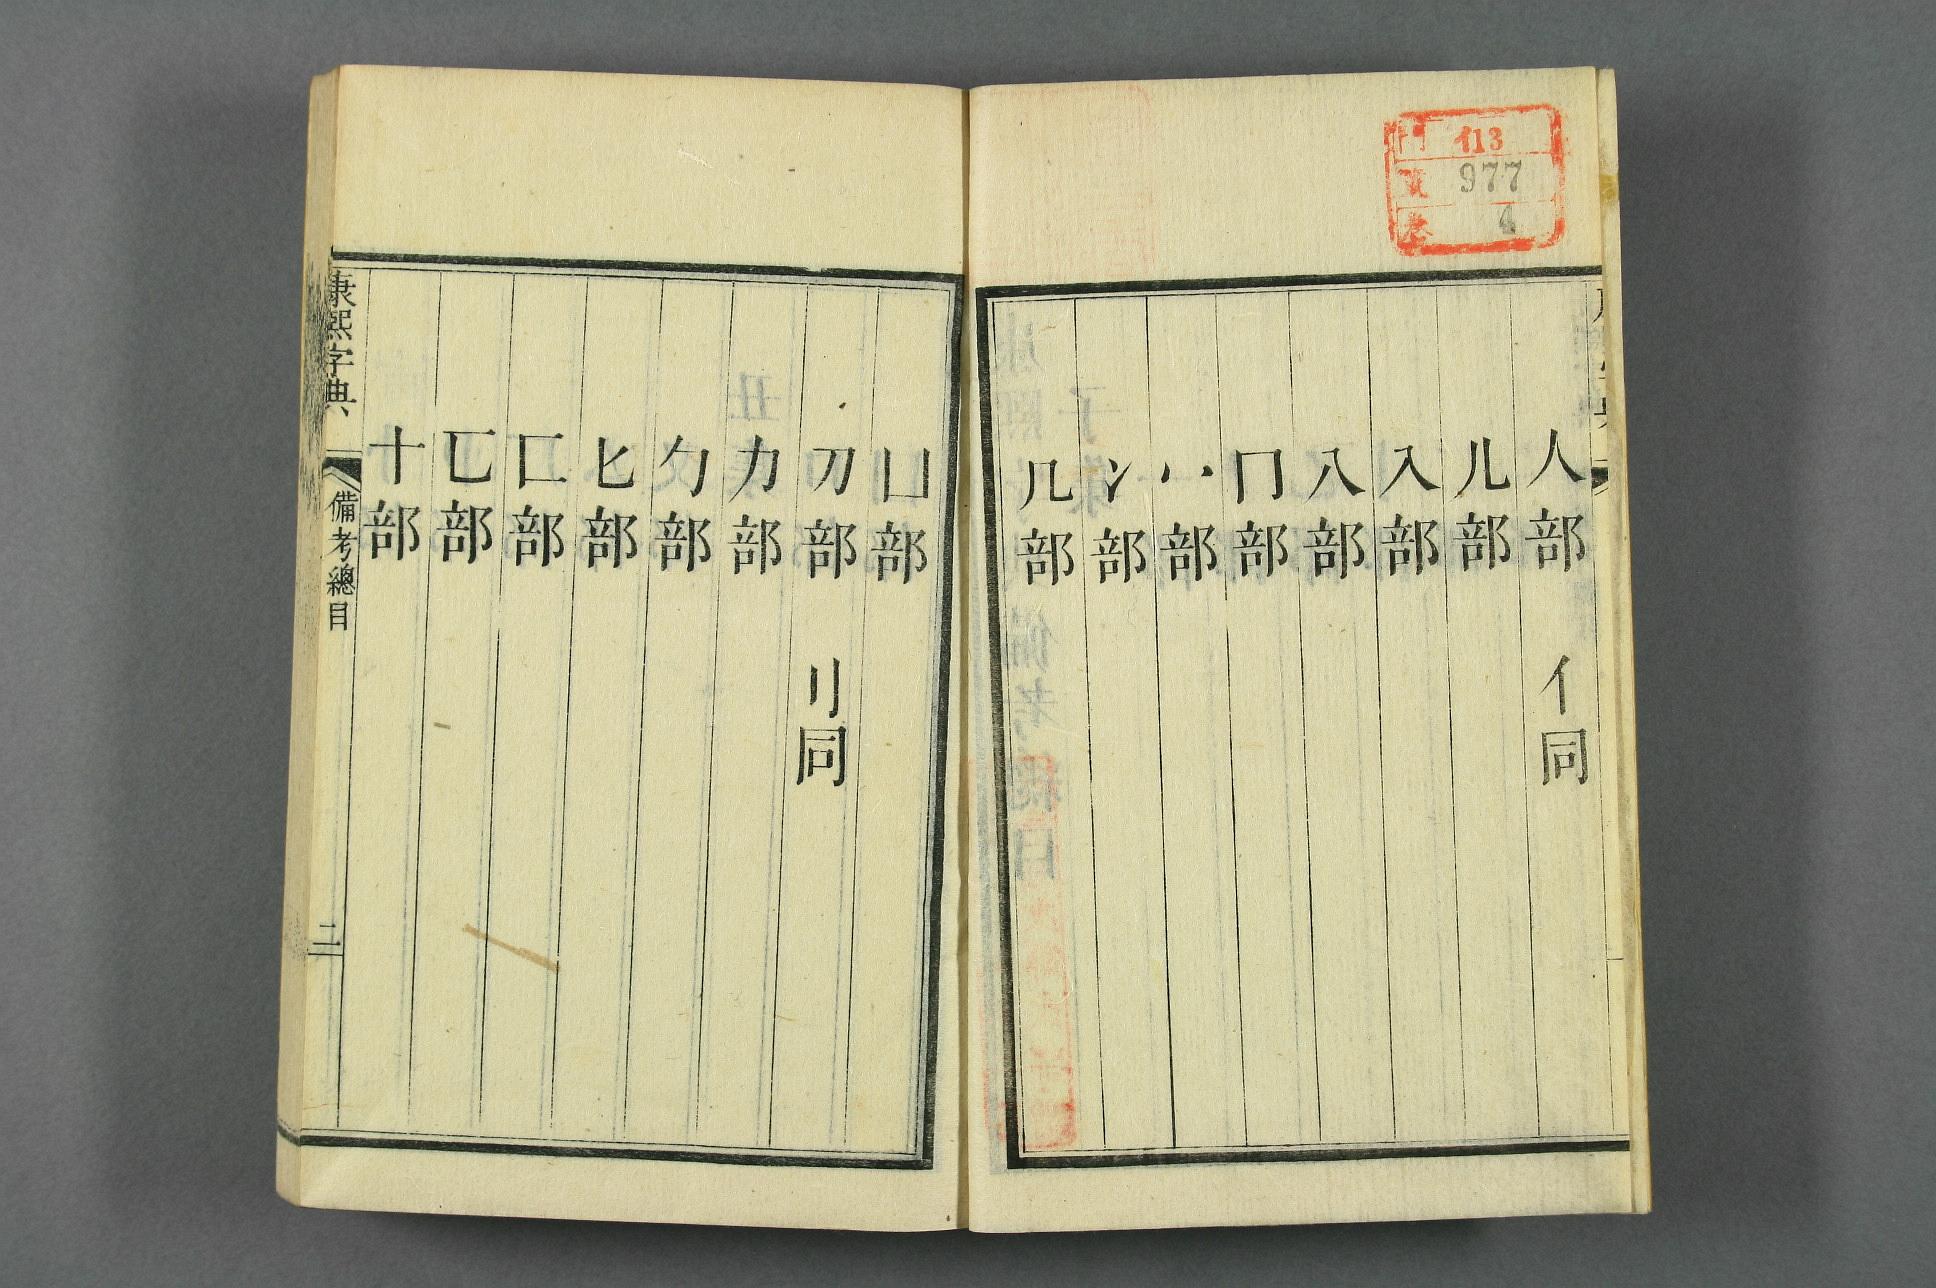 人部 亻同
儿部
入部
八部
冂部
冖部
冫部
几部
凵部
刀部 刂同
力部
勹部
匕部
匚部
匸部
十部
康熙字典 備考總目 二
113
977
4